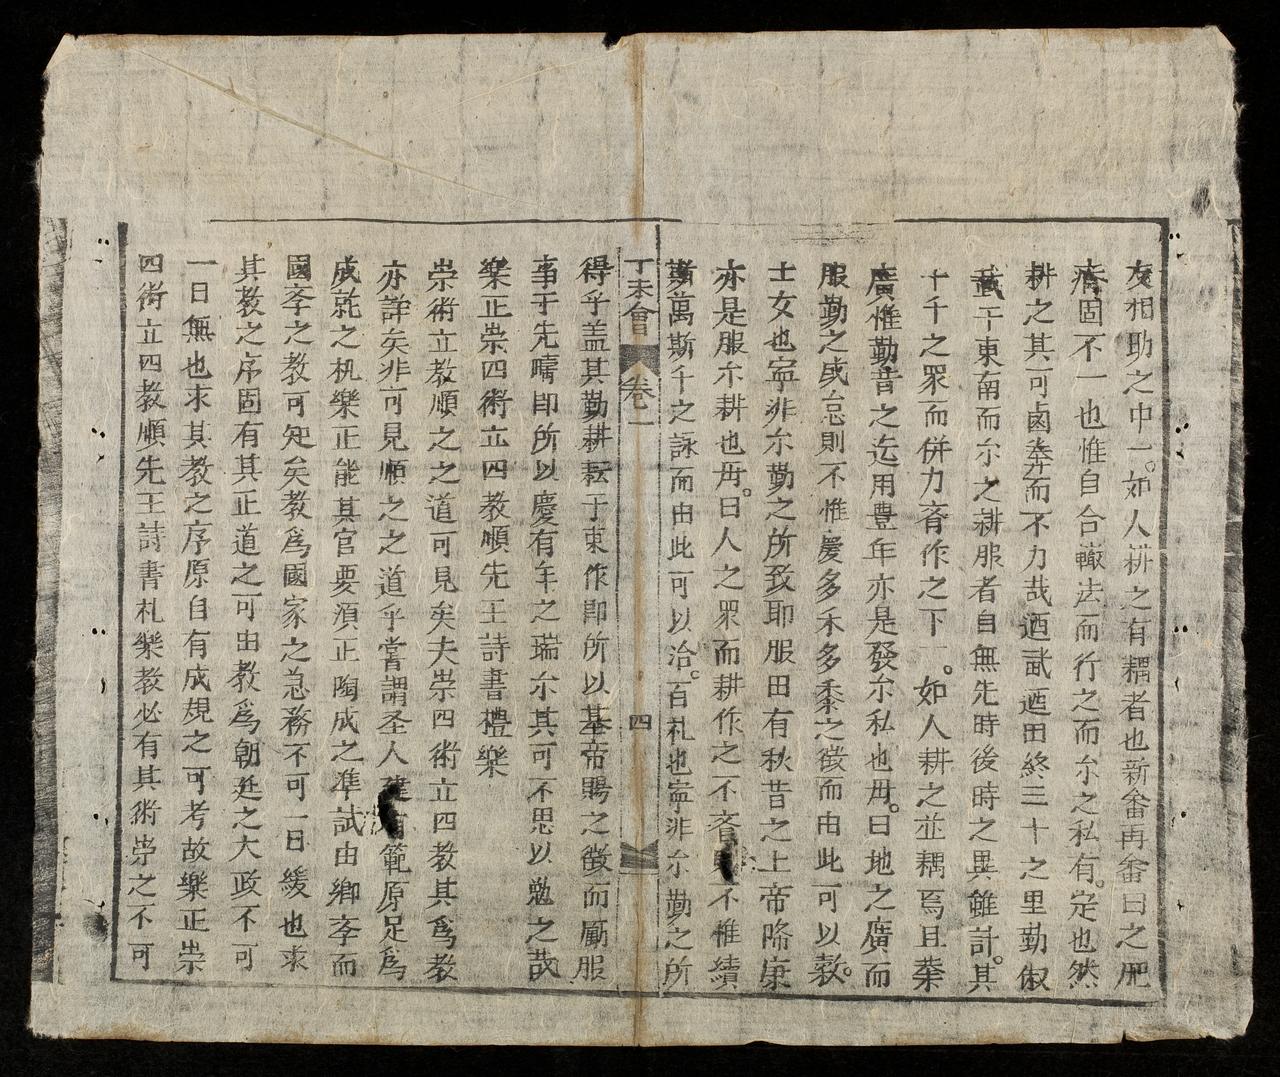 友相助之中一。如人耕之有耦者也新畬再畬田之肥
瘠固不一也惟自合轍法而行之而尔之私有。定也然
耕之其可鹵莽而不力哉迺貳迺田終三十之里勤俶
載于東南而尔之耕服者自無先時後時之異雖計。其
十千之眾而併力齊作之下一。如人耕之並耦焉且藝
廣惟勤昔之迄用豊年亦是發尔私也毋。曰地之廣而
服勤之或怠則不惟慶多禾多黍之徵而由此可以穀。
士女也寧非尔勤之所致耶服田有秋昔之上帝降康
亦是服尔耕也毋。曰人之眾而耕作之不齊不惟續
斯萬斯千之詠而由此可以洽。百礼也寧非尔勤之所
丁未會 卷一 四
得乎盖其勤耕耘于東作即所以基帝賜之徵而勵服
事于先疇即所以慶有年之瑞尔其可不思以勉之哉
樂正崇四術立四教順先王詩書禮樂
崇術立教順之之道可見矣夫崇四術立四教其為教
亦詳矣非可見順之之道乎嘗謂圣人建範原足為
成就之机樂正能其官要須正陶成之準試由鄉斈而
國斈之教可知矣教為國家之急務不可一日緩也求
其教之序固有其正道之可由教為朝廷之大政不可
一日無也求其教之序原自有成規之可考故樂正崇
四術立四教順先王詩書札樂教必有其術崇之不可